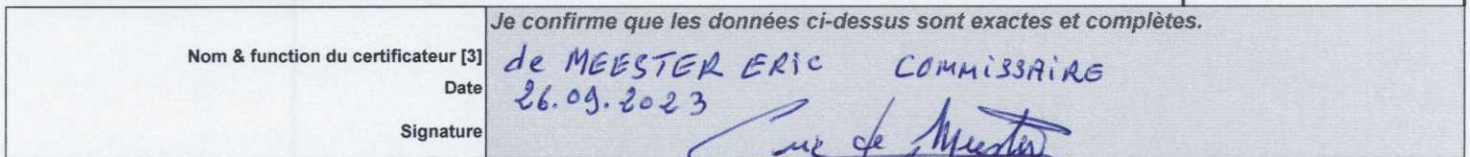 Je confirme que les données ci-dessus sont exactes et complètes.
Nom & function du certificateur [3] de MEESTER ERIC COMMISSAIRE
Date 26.09.2023
Signature Eric de Meester